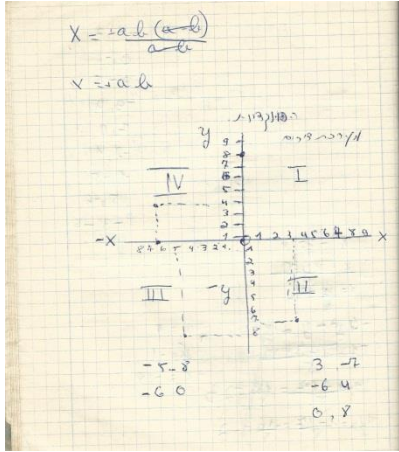 X = -ab(a-b)
a-b
x = +ab
y
מערכת צירים
9
8
7
6
5
4
3
2
1
IV
I
-X
8 7 6 5 4 3 2 1
1 2 3 4 5 6 7 8 9 X
1
2
3
4
5
6
7
8
III
-y
II
-5 -8
3 -7
-6 0
-6 4
0, 8